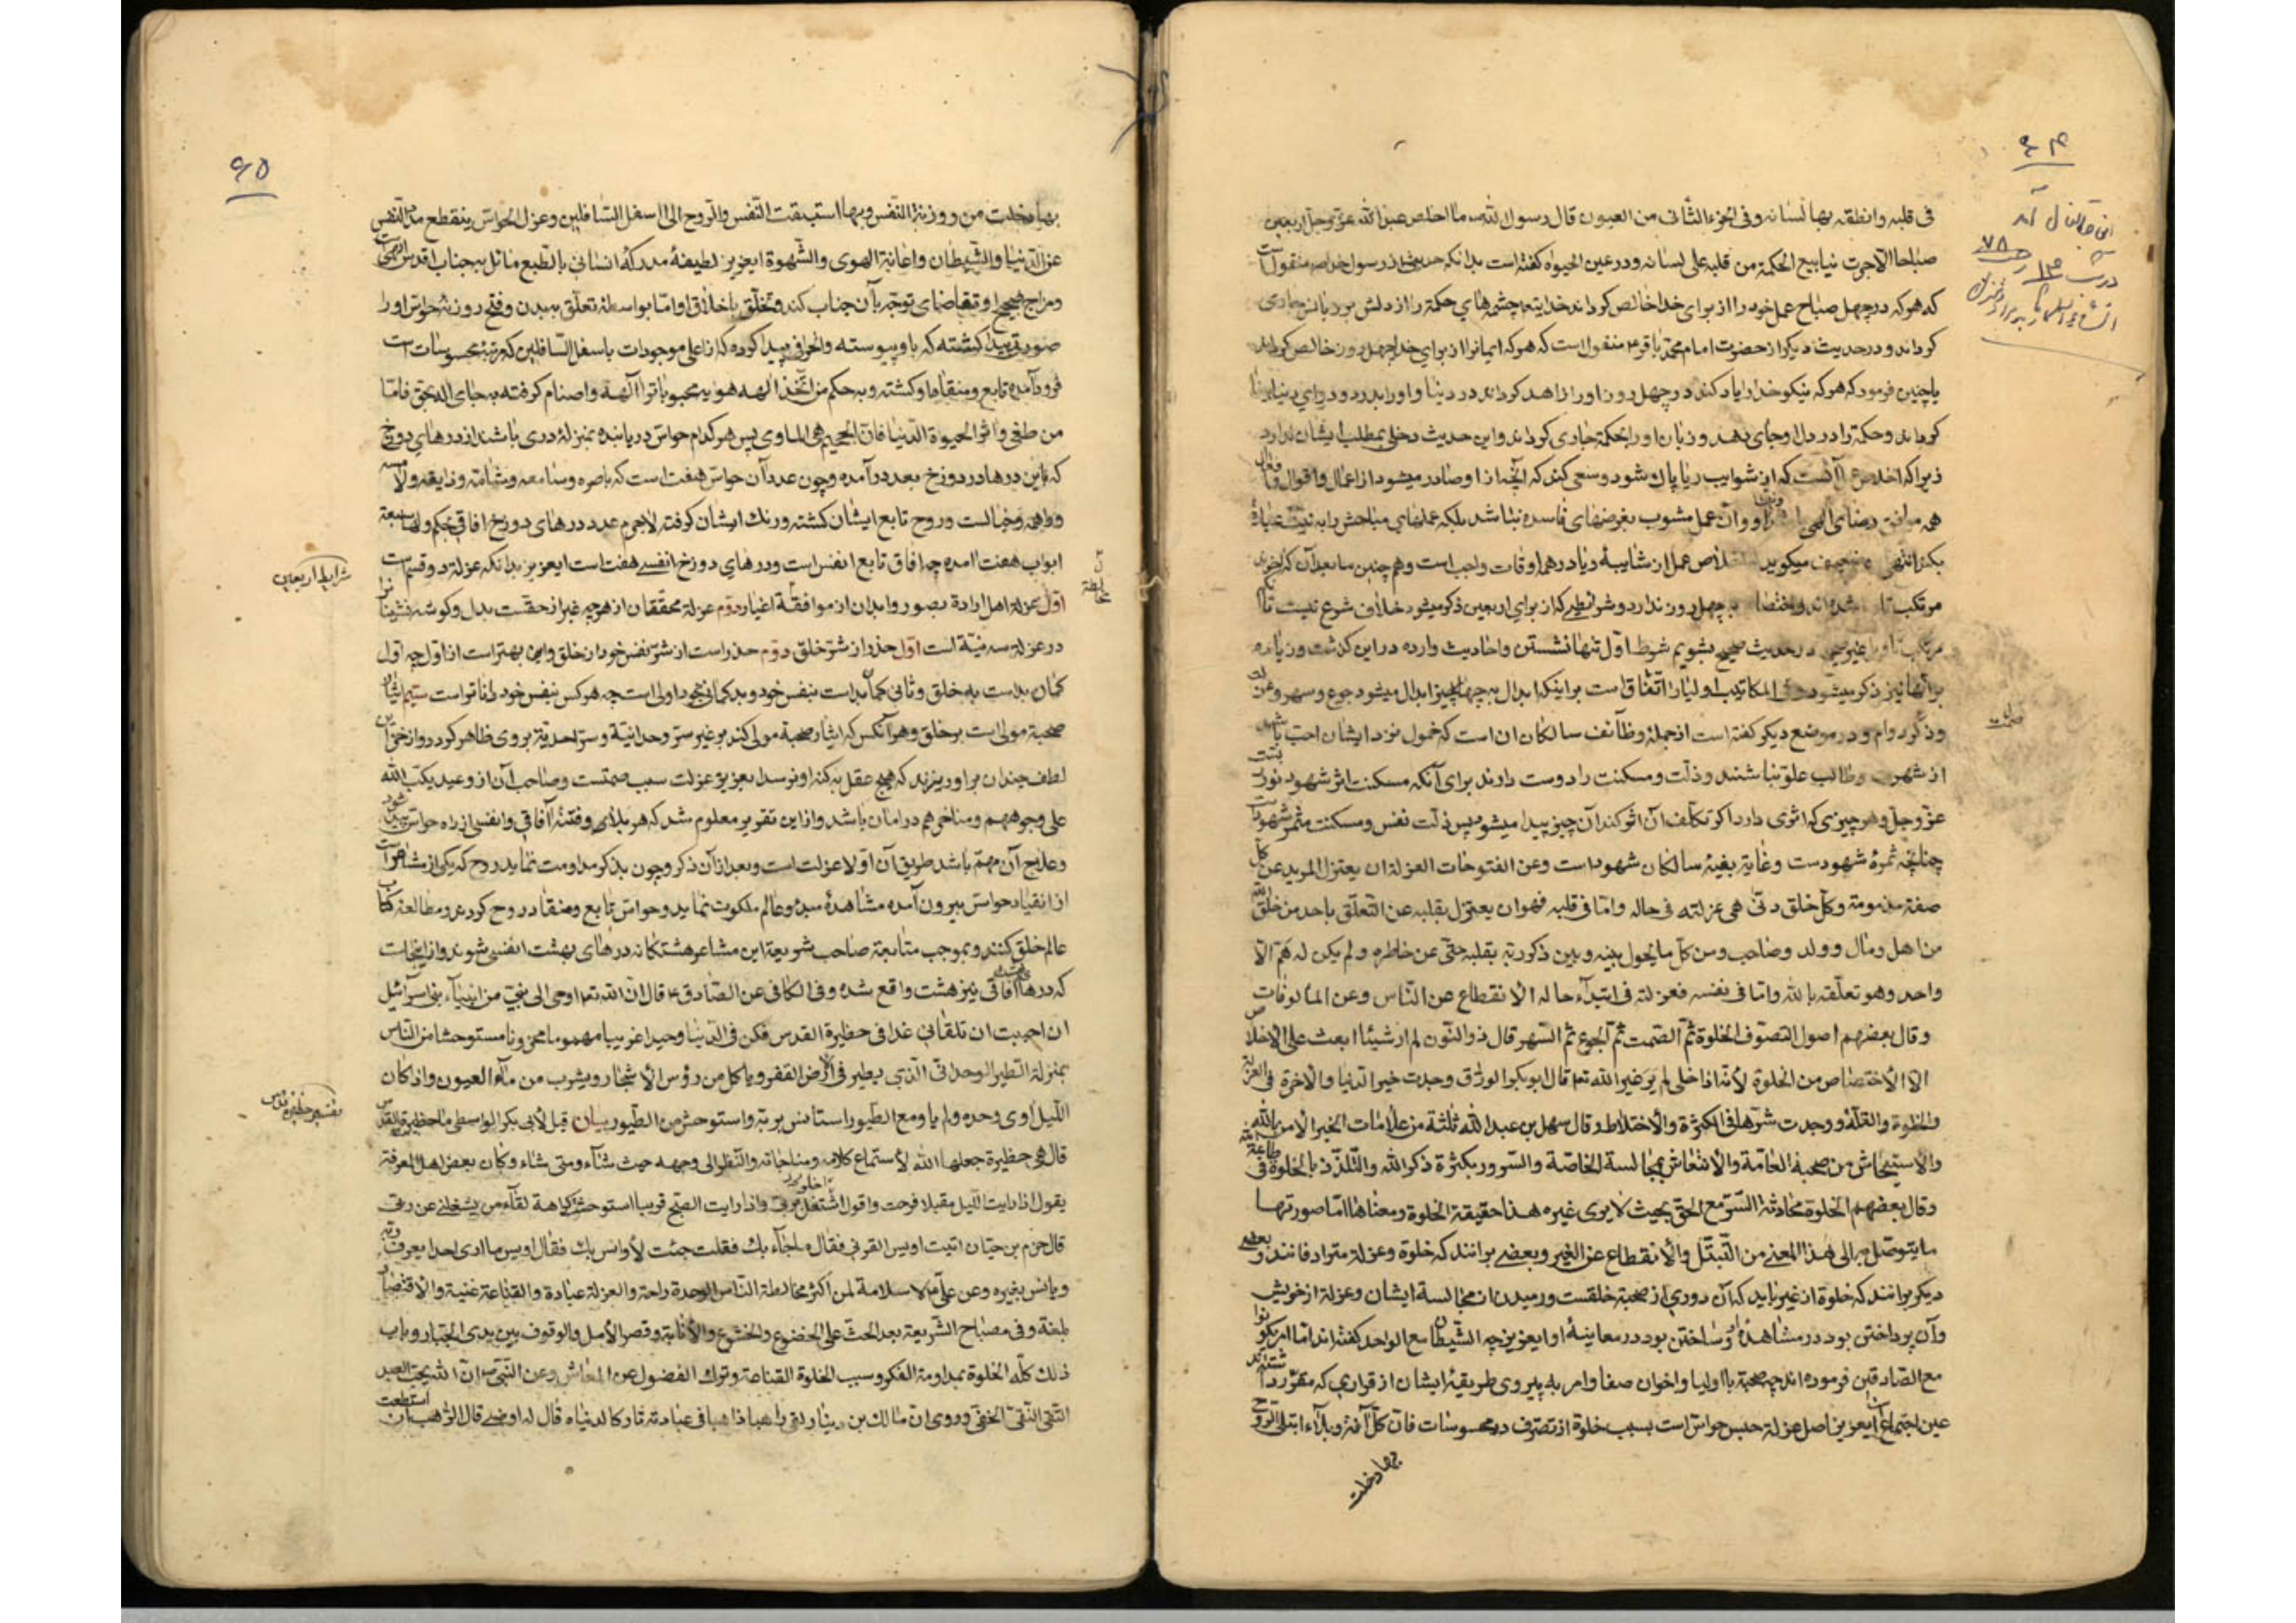 ۶۴
فی قلبه وانطقه بها لسانه وفی الجزء الثانی من العیون قال رسول الله ص ما اخلص عبد الله عز وجل اربعین
صباحا الا جرت ینابیع الحکمة من قلبه علی لسانه ودر عین الحیوة کفته است بدانکه حدیثی از رسول خدا ص منقول است
که هر که در چهل صباح عمل خود را از برای خدا خالص کرداند خدایتعا چشمهای حکمة را از دلش بر زبانش جاری
کرداند ودر حدیث دیکر از حضرت امام محمد باقر ع منقول است که هر که ایمانرا از برای خدا چهل روز خالص کرداند
یا چنین فرمود که هر که نیکو خدا را یاد کند در چهل روز او را زاهد کرداند در دنیا و او را بدرد ودوای دنیا بینا
کرداند وحکمة را در دل او جای دهد وزبان او را بحکمة جاری کرداند واین حدیث دخلی بمطلب ایشان ندارد
زیرا که اخلاص آنست که از شوایب ریا پاک شود وسعی کند که آنچه از او صادر میشود از اعمال واقوال وافعال
همه موافق رضای الهی باشد وآن عمل مشوب بغرضهای فاسده نباشد بلکه عملهای مباحش را به نیت عبادة
بکند انتهی میکوید اخلاص عمل از شایبهٔ ریا در همه اوقات واجب است وهم چنین ما بعد آن که
مرتکب شده اند واختصاص به چهل روز ندارد وشرائطی که از برای اربعین ذکر میشود خلاف شرع نیست تا
مرتکب تاویل غیر صحیح در حدیث صحیح بشویم شرط اول تنها نشستن واحادیث وارده در این کذشت وزیاده
بر آنها نیز ذکر میشود المکاتیب اولیا را اتفاق است بر اینکه ابدال به چهار چیز ابدال میشود جوع وسهر وعزلت
وذکر دوام ودر موضع دیکر کفته است از جملهٔ وظائف سالکان ان است که خمول نزد ایشان احب باشد
از شهرت وطالب علو نباشند وذلت ومسکنت را دوست دارند برای آنکه مسکنت اثر شهود نور
عز وجل وهر چیزی که اثری دارد اکر تکلف آن اثر کند آن چیز پیدا میشود پس ذلت نفس ومسکنت مثمر شهودست
چنانچه ثمرهٔ شهودست وغایة بغیهٔ سالکان شهود است وعن الفتوحات العزلة ان یعتزل المرید عن کل
صفة مذمومة وکل خلق دنی هی عزلته فی حاله واما فی قلبه فهو ان یعتزل بقلبه عن التعلق باحد من خلق الله
من اهل ومال وولد وصاحب ومن کل ما یحول بینه وبین ذکر ربه بقلبه حتی عن خاطره ولم یکن له هم الا
واحد وهو تعلقه بالله واما فی نفسه فعزلته فی ابتداء حاله الانقطاع عن الناس وعن المألوفات
وقال بعضهم اصول التصوف الخلوة ثم الصمت ثم الجوع ثم السهر قال ذو النون لم ار شیئا ابعث علی الاخلاص
الا الاختصاص من الخلوة لأنه اذا خلی لم یر غیر الله تعا قال ابو بکر الوراق وجدت خیر الدنیا والاخرة فی العزلة
والخلوة والقلة ووجدت شرهما فی الکثرة والاختلاط وقال سهل بن عبد الله ثلثة من علامات الخیر الانس بالله
والاستیحاش من صحبة العامة والانتعاش بمجالسة الخاصة والسرور بکثرة ذکر الله والتلذذ بالخلوة فی طاعة الله
وقال بعضهم الخلوة محادثة السر مع الحق بحیث لا یری غیره هذا حقیقة الخلوة ومعناها اما صورتها
ما یتوصل به الی هذا المعنی من التبتل والانقطاع عن الغیر وبعضی برانند که خلوة وعزلة مترادفانند وبعضی
دیکر برانند که خلوة از غیر باید که آن دوری از صحبة خلقست ورمیدن از مجالسة ایشان وعزلة از خویش
وآن پرداختن بود در مشاهدهٔ او وساختن بود در معاینهٔ او ایعزیز چه الشیطان مع الواحد کفته اند اما امر بکونوا
مع الصادقین فرموده اند چه صحبة با اولیا واخوان صفا وامر به پیروی طریقهٔ ایشان از قراری که مقرر داشته اند
عین اجتماع است ایعزیز اصل عزلة حبس حواس است بسبب خلوة از تصرف در محسوسات فان کل آفة وبلاء ابتلی الروح
بها دخلت
۶۵
بها دخلت من روزنة النفس وبها استبقت النفس والروح الی اسفل السافلین وعزل الحواس ینقطع مدد النفس
عن الدنیا والشیطان واعانة الهوی والشهوة ایعزیز لطیفهٔ مدرکهٔ انسانی بالطبع مائل بجناب اقدس الهی است
ومزاج صحیح او تقاضای توجه بآن جناب کند وتخلق باخلاق او اما بواسطهٔ تعلق به بدن وفتح روزنهٔ حواس او را
صورتی پیدا کشته که باو پیوسته وانحرافی پیدا کرده که از اعلی موجودات باسفل السافلین که مرتبهٔ محسوسات است
فرود آمده تابع ومنقاد او کشته وبه حکم من اتخذ الهه هویه محبوباترا آلهة واصنام کرفته به جای اله بحق فاما
من طغی واثر الحیوة الدنیا فان الجحیم هی الماوی پس هر کدام حواس دریابنده بمنزلهٔ دری باشند از درهای دوزخ
که باین درها در دوزخ بعد در آمده وچون عدد آن حواس هفت است که باصره وسامعه وشامه وذایقه ولامسه
وواهمه وخیالست وروح تابع ایشان کشته ورنک ایشان کرفته لاجرم عدد درهای دوزخ افاقی بحکم ولها سبعة
ابواب هفت امده چه افاق تابع انفس است ودرهای دوزخ انفسی هفت است ایعزیز بدانکه عزلة دو قسمست
شرایط اربعین
اول عزلة اهل ارادة بصور وابدان از موافقة اغیار دوم عزلة محققان از هر چه غیر از حقست بدل وکوشه نشینانرا
در عزلة سه نیة است اول حذر از شر خلق دوم حذر است از شر نفس خود از خلق واین بهتر است از اول چه اول
کمان بد است به خلق وثانی کمان بد است بنفس خود وبد کمانی بخود اولی است چه هر کس بنفس خود داناتر است سیم ایثار
صحبة مولی است بر خلق وهر آنکس که ایثار صحبة مولی کند بر غیر سر وحدانیة وسر احدیة بر وی ظاهر کردد واز خزاین
لطف چندان بر او ریزند که هیچ عقل به کنه او نرسد ایعزیز عزلت سبب صمتست وصاحب آن از وعید یکب الله
علی وجوههم ومناخرهم در امان باشد واز این تقریر معلوم شد که هر بلائی وفتنهٔ آفاقی وانفسی از راه حواس پیدا شود
وعلاج آن مهم باشد طریق آن اولا عزلت است وبعد از آن ذکر وچون بذکر مداومت نماید روح که یکی از مشاعر است
از انقیاد حواس بیرون آمده مشاهدهٔ مبدء وعالم ملکوت نماید وحواس تابع ومنقاد روح کردد ومطالعهٔ کتاب
عالم خلق کنند وبموجب متابعة صاحب شریعة این مشاعر هشتکانه درهای بهشت انفسی شوند واز اینجاست
که درهای بهشت آفاقی نیز هشت واقع شده وفی الکافی عن الصادق ع قال ان الله تعا اوحی الی نبی من انبیاء بنی اسرائیل
ان احببت ان تلقانی غدا فی حظیرة القدس فکن فی الدنیا وحیدا غریبا مهموما محزونا مستوحشا من الناس
بمنزلة الطیر الوحدانی الذی یطیر فی الأرض القفر ویاکل من رؤس الأشجار ویشرب من ماء العیون واذا کان
اللیل اوی وحده ولم یاو مع الطیور استانس بربه واستوحش من الطیور بیان قیل لأبی بکر الواسطی ما حظیرة القدس
تفسیر حظیرة القدس
قال هی حظیرة جعلها الله لأستماع کلامه ومناجاته والنظر الی وجهه حیث شاء ومتی شاء وکان بعض اهل المعرفة
یقول اذا رایت اللیل مقبلا فرحت واقول اشتغل بربی واذا رایت الصبح قریبا استوحش کراهة لقاء من یشغلنی عن ربی
قال حزم بن حیان اتیت اویس القرنی فقال ما جاء بک فقلت جئت لأوانس بک فقال اویس ما اری احدا یعرف ربه
ویانس بغیره وعن علی ع لا سلامة لمن اکثر مخالطة الناس الوحدة راحة والعزلة عبادة والقناعة غنیة والاقتصاد
بلغة وفی مصباح الشریعة بعد الحث علی الخضوع والخشوع والأنابة وقصر الأمل والوقوف بین یدی الجبار وباب
ذلک کله الخلوة بمداومة الفکر وسبب الخلوة القناعة وترک الفضول عن المعاش وعن النبی ص ان الله یحب العبد
التقی النقی الخفی وروی ان مالک بن دینار لقی راهبا ذاهبا فی عبادته تارکا لدنیاه قال له اوصنی قال الراهب ان استطعت